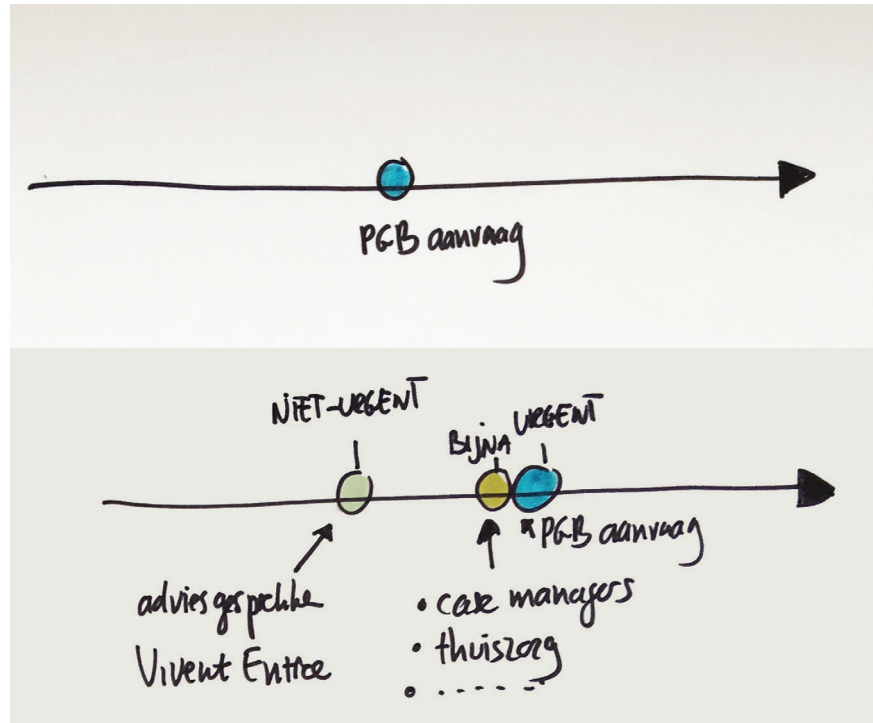 PGB aanvraag
NIET-URGENT
BIJNA
URGENT
*PGB aanvraag
adviesgesprekke
Vivent Entree
• case managers
• thuiszorg
• ......